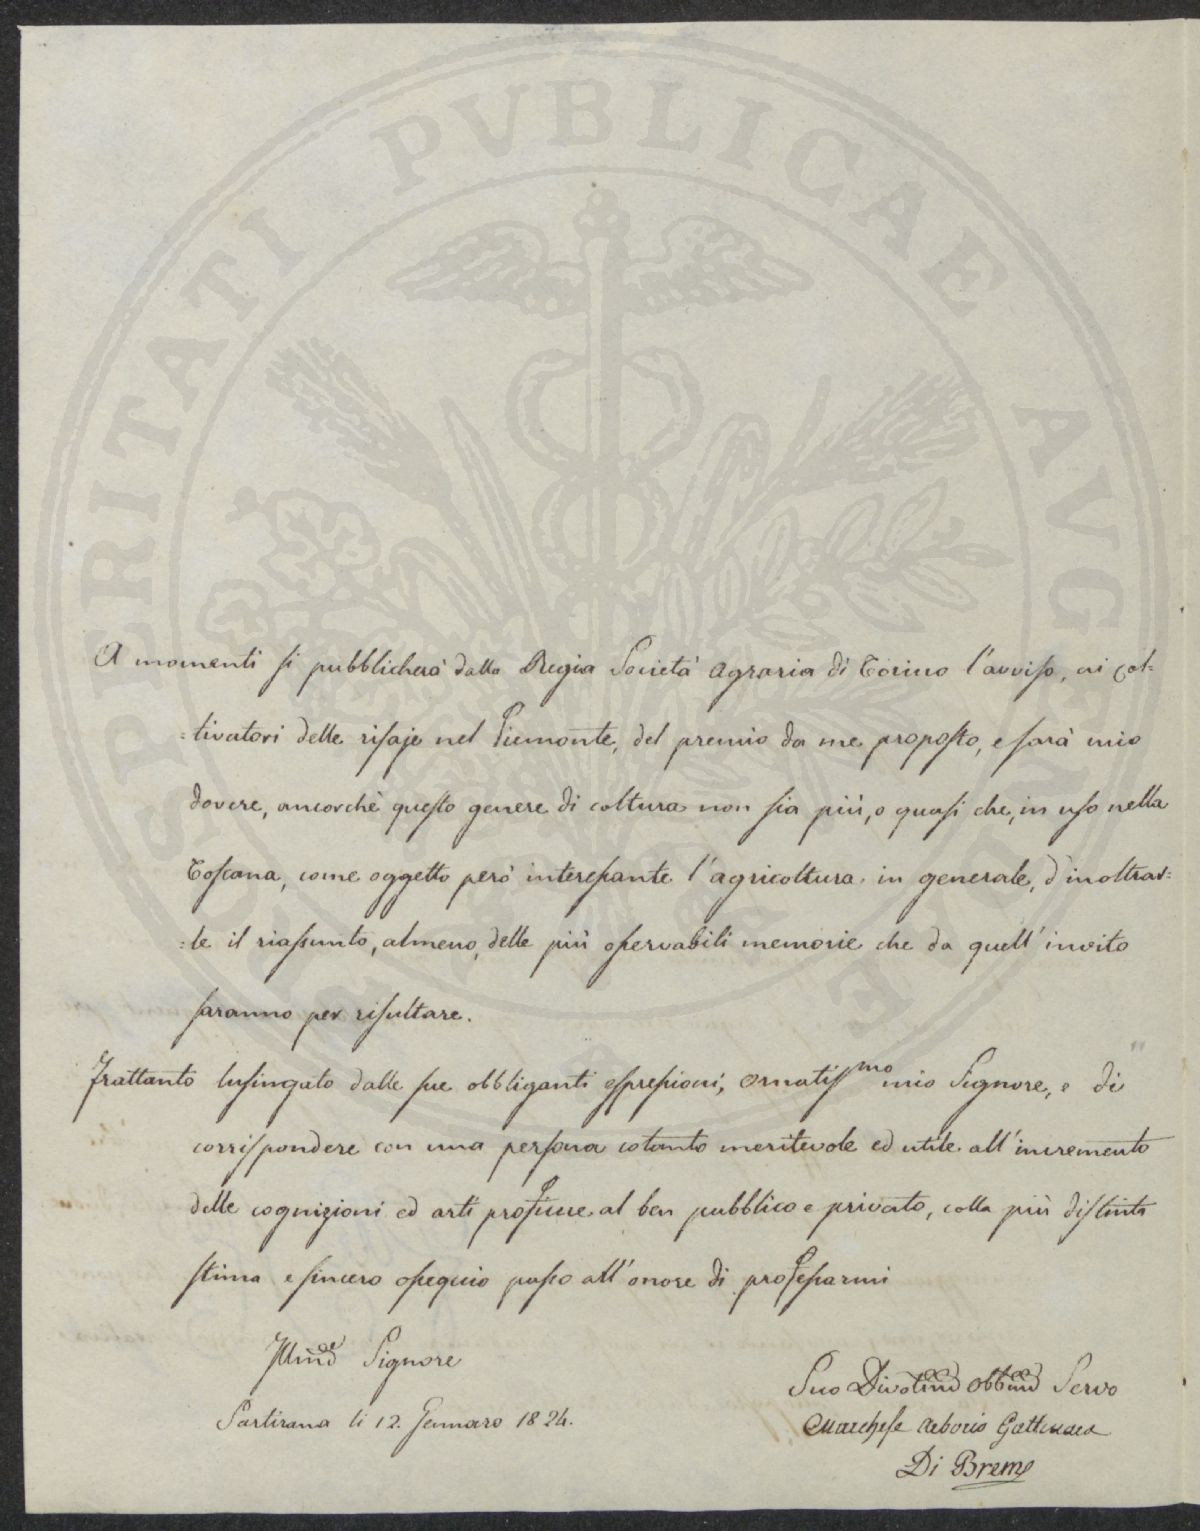 PROSPERITATI PVBLICAE AVGENDAE
A momenti si pubblicherà dalla Regia Società Agraria di Torino l'avviso, ai col=
=tivatori delle risaje nel Piemonte, del premio da me proposto, e sarà mio
dovere, ancorchè questo genere di coltura non sia più, o quasi che, in uso nella
Toscana, come oggetto però interessante l'agricoltura in generale, d'inoltrar=
=le il riassunto, almeno, delle più osservabili memorie che da quell'invito
saranno per risultare.
Frattanto lusingato dalle sue obbliganti espressioni, Ornatissmo mio Signore, e di
corrispondere con una persona cotanto meritevole ed utile all'incremento
delle cognizioni ed arti proficue al ben pubblico e privato, colla più distinta
stima e sincero ossequio passo all'onore di professarmi
Signore
Sartirana li 12. Gennaro 1824.
Suo Servo
Marchese Arborio Gattinara
Di Breme